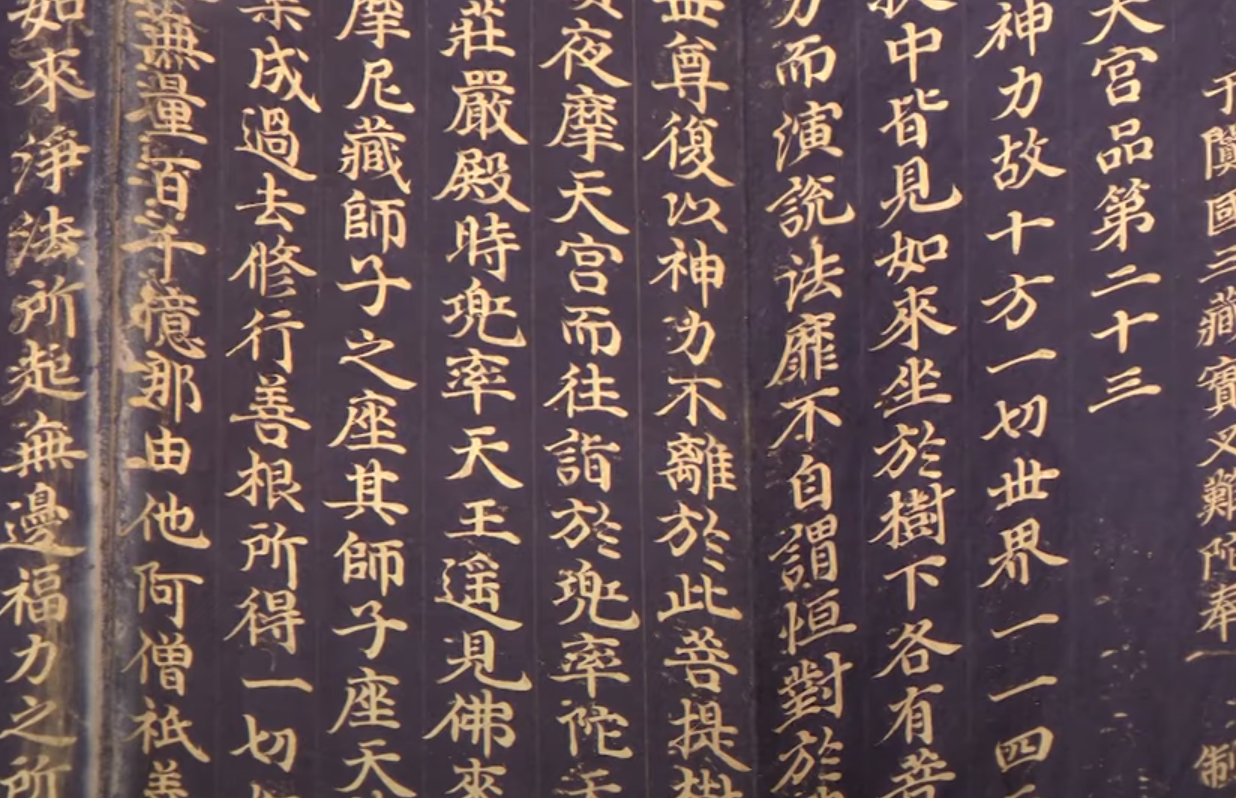 于闐國三藏實叉難陀奉一制
天宮品第二十三
神力故十方一切世界一一四
中皆見如來坐於樹下各有菩
力而演說法靡不自謂恒對於
世尊復以神力不離於此菩提樹
夜摩天宮而往詣於兜率陀天
莊嚴殿時兜率天王遥見佛來
摩尼藏師子之座其師子座天
業成過去修行善根所得一切
無量百千億那由他阿僧祇善
如來淨法所起無邊福力之所